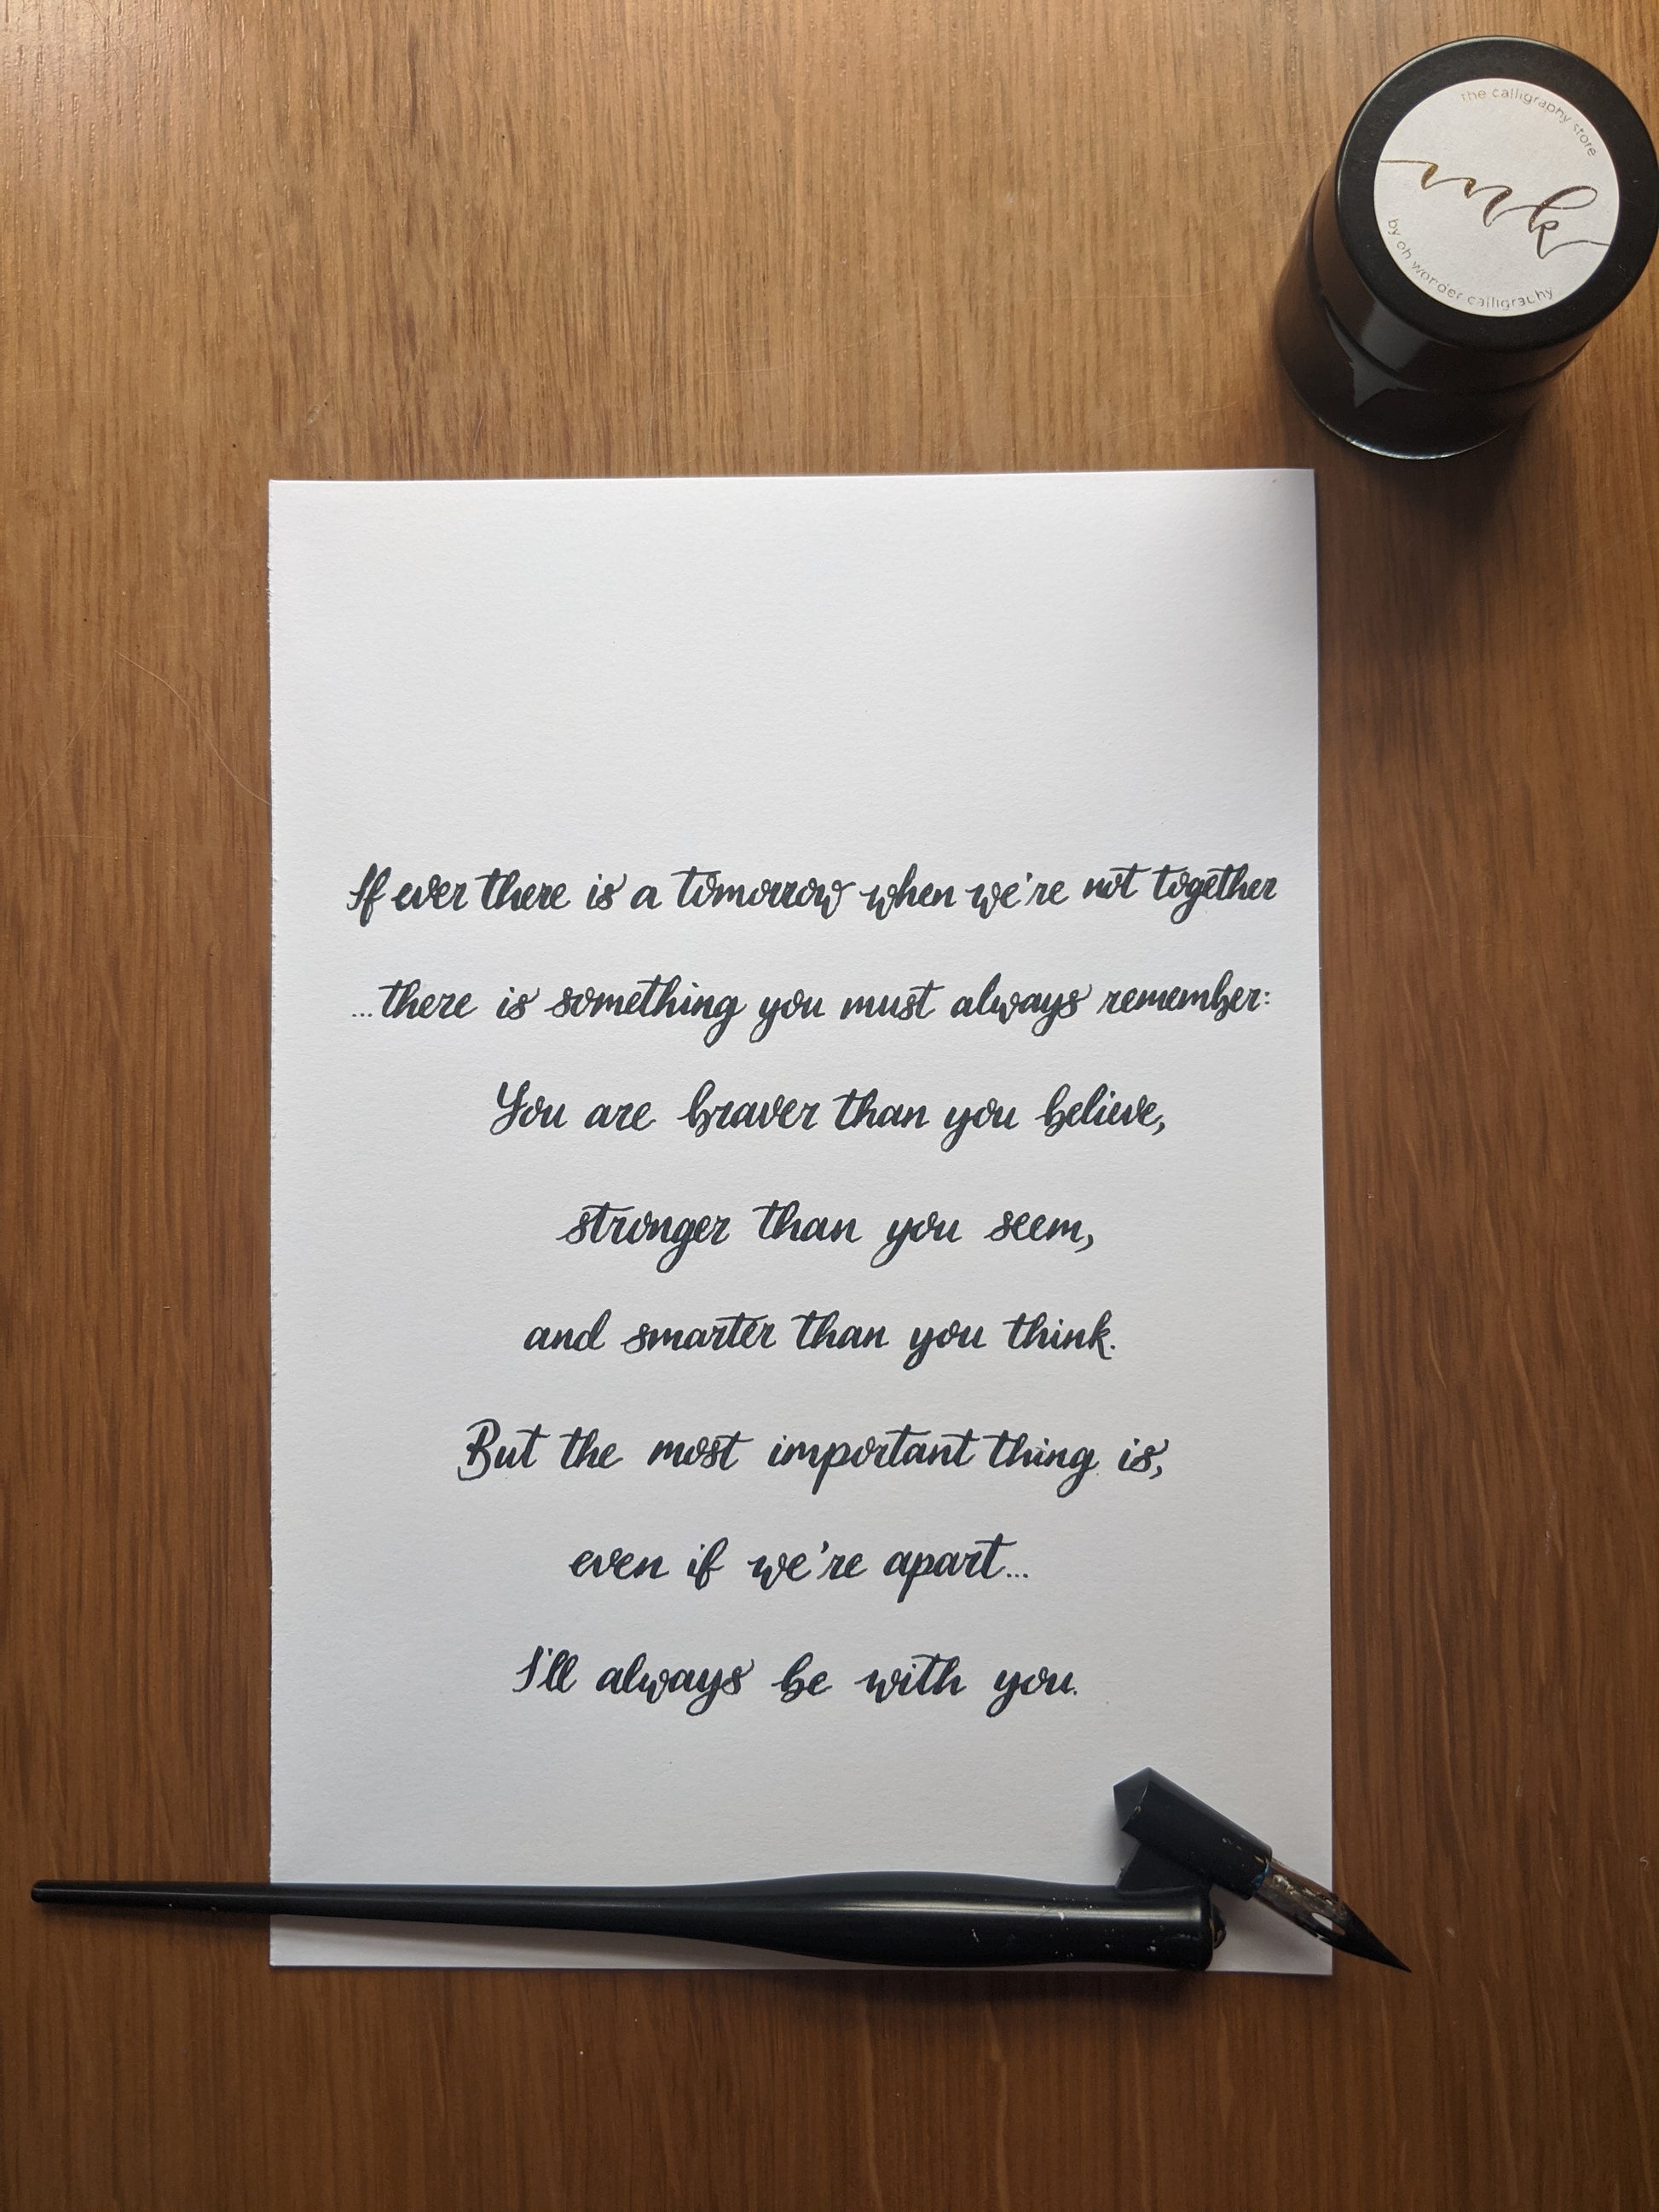 the calligraphy store
ink
by oh wonder calligraphy
If ever there is a tomorrow when we're not together
...there is something you must always remember:
You are braver than you believe,
stronger than you seem,
and smarter than you think.
But the most important thing is,
even if we're apart...
I'll always be with you.